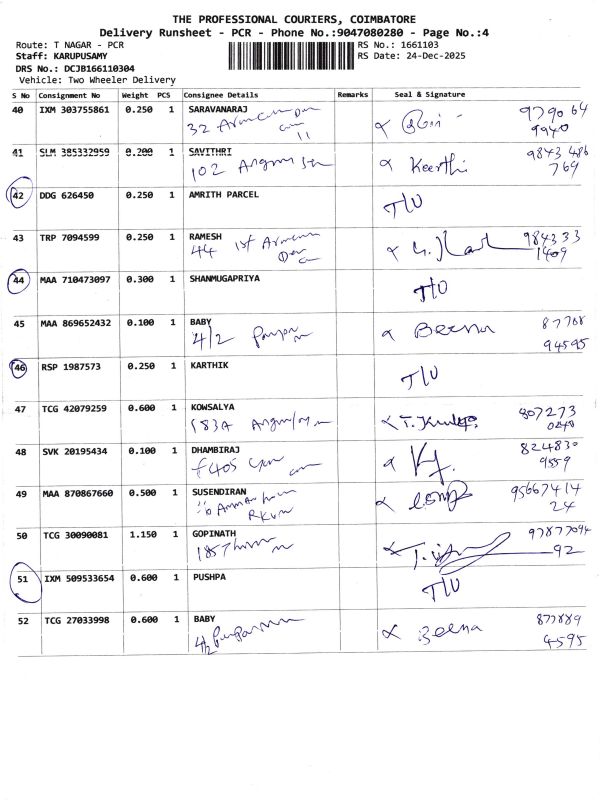 THE PROFESSIONAL COURIERS, COIMBATORE
Delivery Runsheet - PCR - Phone No.:9047080280 - Page No.:4
Route: T NAGAR - PCR RS No.: 1661103
Staff: KARUPUSAMY RS Date: 24-Dec-2025
DRS No.: DCJB166110304
Vehicle: Two Wheeler Delivery
S No Consignment No Weight PCS Consignee Details Remarks Seal & Signature
40 IXM 303755861 0.250 1 SARAVANARAJ 979064
32 9940
11
41 SLM 385332959 0.200 1 SAVITHRI 9843 486
102 Keerthi 764
42 DDG 626450 0.250 1 AMRITH PARCEL
T/U
43 TRP 7094599 0.250 1 RAMESH 984333
44 1st 1409
44 MAA 710473097 0.300 1 SHANMUGAPRIYA
T/U
45 MAA 869652432 0.100 1 BABY Beena 87788
4/2 94595
46 RSP 1987573 0.250 1 KARTHIK
T/U
47 TCG 42079259 0.600 1 KOWSALYA 807273
183A 0240
48 SVK 20195434 0.100 1 DHAMBIRAJ 824830
f405 9559
49 MAA 870867660 0.500 1 SUSENDIRAN 95667414
24
50 TCG 30090081 1.150 1 GOPINATH 97877094
185 92
51 IXM 509533654 0.600 1 PUSHPA T/U
52 TCG 27033998 0.600 1 BABY 877889
4/2 Beena 4595